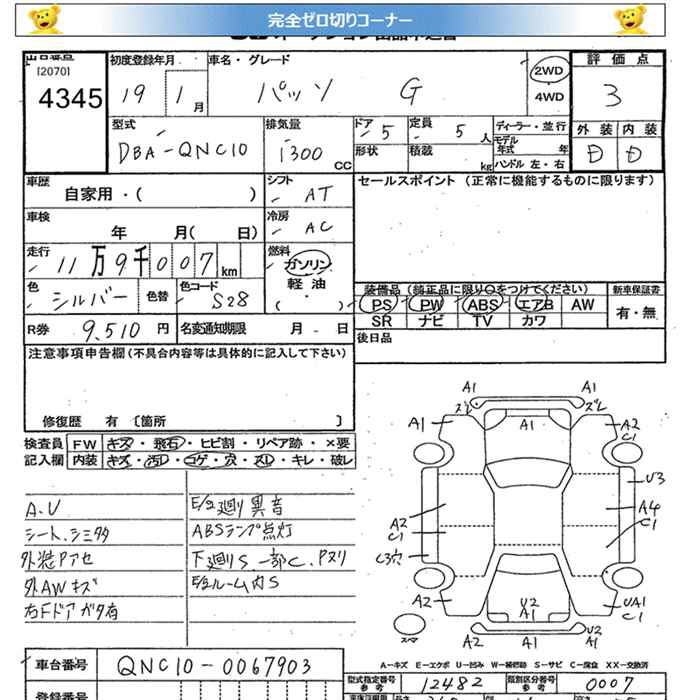 完全ゼロ切りコーナー
出品番号
[2070]
4345
初度登録年月
19 1 月
車名・グレード
パッソ G
2WD
4WD
評価点
3
外装 内装
D D
型式
DBA-QNC10
排気量
1300 CC
ドア
5
定員
5 人
形状
積載
kg
ディーラー・並行
モデル年式 年
ハンドル 左・右
車歴
自家用・( )
シフト
AT
セールスポイント (正常に機能するものに限ります)
車検
年 月( 日)
冷房
AC
走行
11万9千007km
燃料
ガソリン
軽油
( )
色
シルバー
色替
色コード
S28
装備品 (純正品に限り○をつけてください)
PS PW ABS エアB AW
SR ナビ TV カワ
新車保証書
有・無
R券 9,510 円
名変通知期限 月 日
後日品
注意事項申告欄 (不具合内容等は具体的に記入して下さい)
修復歴 有 〔箇所 〕
検査員 FW キズ・飛石・ヒビ割・リペア跡・×要
記入欄 内装 キズ・汚れ・コゲ・穴・スレ・キレ・破レ
A.U
シート、シミ多
外装Pアセ
外AWキズ
右Fドアガタ有
E/g廻り異音
ABSランプ点灯
下廻りS 一部C、Pヌリ
E/gルーム内S
A1 A1
ズレ ズレ
A1 A1 A2
C1
U3
A2
C1
A4
C1
C3穴
A2
U2
A1
UA1
C1
U2
A1 A1
スペア
A-キズ E-エクボ U-凹み W-補修跡 S-サビ C-腐食 XX-交換済
車台番号 QNC10-0067903
型式指定番号
参考
12482
類別区分番号
参考
0007
登録番号